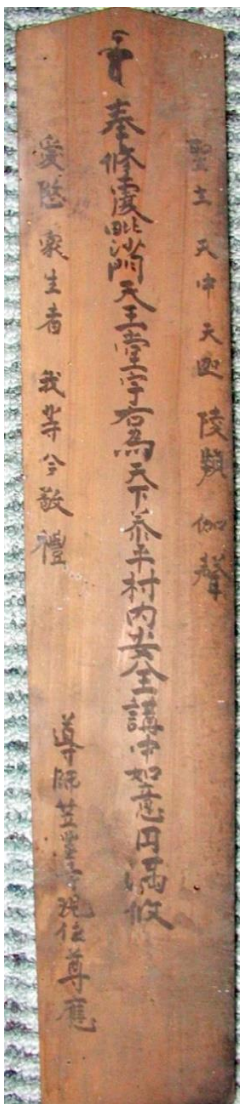 聖主 天中天迦 陵頻 伽聲
奉修覆毘沙門天王堂宇右為天下泰平村内安全講中如意円満攸
愛愍 衆生者 我等今敬禮
導師 現住尊應